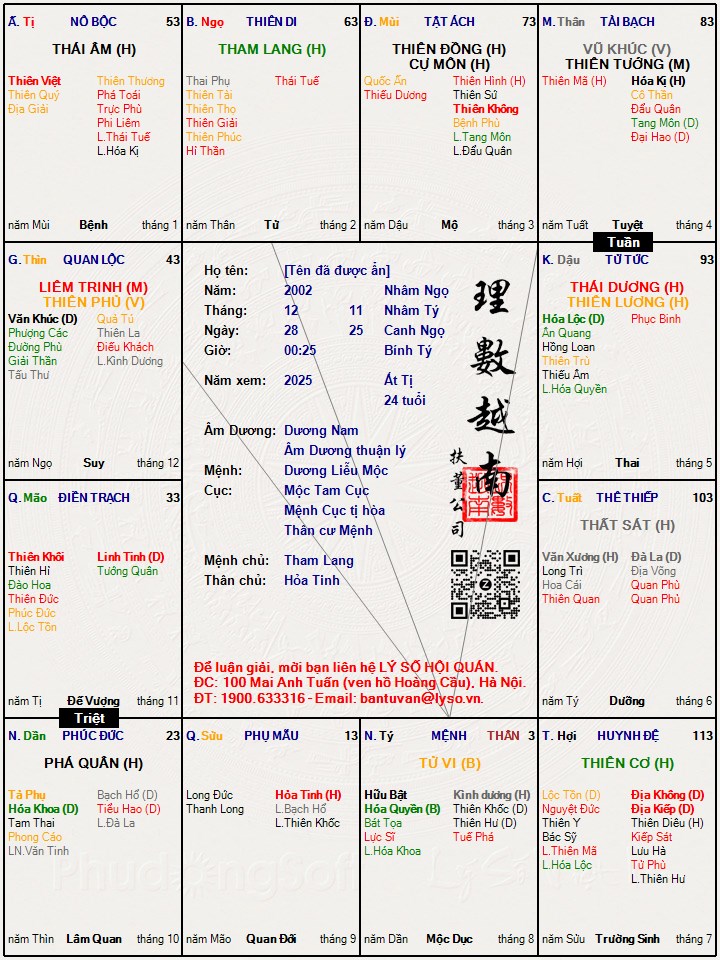 Ấ. Tị NÔ BỘC 53
THÁI ÂM (H)
Thiên Việt Thiên Thương
Thiên Quý Phá Toái
Địa Giải Trực Phù
Phi Liêm
L.Thái Tuế
L.Hóa Kị
năm Mùi Bệnh tháng 1
B. Ngọ THIÊN DI 63
THAM LANG (H)
Thai Phụ Thái Tuế
Thiên Tài
Thiên Thọ
Thiên Giải
Thiên Phúc
Hỉ Thần
năm Thân Tử tháng 2
Đ. Mùi TẬT ÁCH 73
THIÊN ĐỒNG (H)
CỰ MÔN (H)
Quốc Ấn Thiên Hình (H)
Thiếu Dương Thiên Sứ
Thiên Không
Bệnh Phù
L.Tang Môn
L.Đẩu Quân
năm Dậu Mộ tháng 3
M. Thân TÀI BẠCH 83
VŨ KHÚC (V)
THIÊN TƯỚNG (M)
Thiên Mã (H) Hóa Kị (H)
Cô Thần
Đẩu Quân
Tang Môn (D)
Đại Hao (D)
năm Tuất Tuyệt tháng 4
Tuần
G. Thìn QUAN LỘC 43
LIÊM TRINH (M)
THIÊN PHỦ (V)
Văn Khúc (D) Quả Tú
Phượng Các Thiên La
Đường Phù Điếu Khách
Giải Thần L.Kình Dương
Tấu Thư
năm Ngọ Suy tháng 12
Họ tên: [Tên đã được ẩn]
Năm: 2002 Nhâm Ngọ
Tháng: 12 11 Nhâm Tý
Ngày: 28 25 Canh Ngọ
Giờ: 00:25 Bính Tý
Năm xem: 2025 Ất Tị
24 tuổi
Âm Dương: Dương Nam
Âm Dương thuận lý
Mệnh: Dương Liễu Mộc
Cục: Mộc Tam Cục
Mệnh Cục tị hòa
Thân cư Mệnh
Mệnh chủ: Tham Lang
Thân chủ: Hỏa Tinh
理數越南
扶董公司
Để luận giải, mời bạn liên hệ LÝ SỐ HỘI QUÁN.
ĐC: 100 Mai Anh Tuấn (ven hồ Hoàng Cầu), Hà Nội.
ĐT: 1900.633316 - Email: bantuvan@lyso.vn.
K. Dậu TỬ TỨC 93
THÁI DƯƠNG (H)
THIÊN LƯƠNG (H)
Hóa Lộc (D) Phục Binh
Ân Quang
Hồng Loan
Thiên Trù
Thiếu Âm
L.Hóa Quyền
năm Hợi Thai tháng 5
Q. Mão ĐIỀN TRẠCH 33
Thiên Khôi Linh Tinh (D)
Thiên Hỉ Tướng Quân
Đào Hoa
Thiên Đức
Phúc Đức
L.Lộc Tồn
năm Tị Đế Vượng tháng 11
Triệt
C. Tuất THÊ THIẾP 103
THẤT SÁT (H)
Văn Xương (H) Đà La (D)
Long Trì Địa Võng
Hoa Cái Quan Phù
Thiên Quan Quan Phủ
năm Tý Dưỡng tháng 6
N. Dần PHÚC ĐỨC 23
PHÁ QUÂN (H)
Tả Phụ Bạch Hổ (D)
Hóa Khoa (D) Tiểu Hao (D)
Tam Thai L.Đà La
Phong Cáo
LN.Văn Tinh
năm Thìn Lâm Quan tháng 10
Q. Sửu PHỤ MẪU 13
Long Đức Hỏa Tinh (H)
Thanh Long L.Bạch Hổ
L.Thiên Khốc
năm Mão Quan Đới tháng 9
N. Tý MỆNH THÂN 3
TỬ VI (B)
Hữu Bật Kình dương (H)
Hóa Quyền (B) Thiên Khốc (D)
Bát Tọa Thiên Hư (D)
Lực Sĩ Tuế Phá
L.Hóa Khoa
năm Dần Mộc Dục tháng 8
T. Hợi HUYNH ĐỆ 113
THIÊN CƠ (H)
Lộc Tồn (D) Địa Không (D)
Nguyệt Đức Địa Kiếp (D)
Thiên Y Thiên Diêu (H)
Bác Sỹ Kiếp Sát
L.Thiên Mã Lưu Hà
L.Hóa Lộc Tử Phù
L.Thiên Hư
năm Sửu Trường Sinh tháng 7